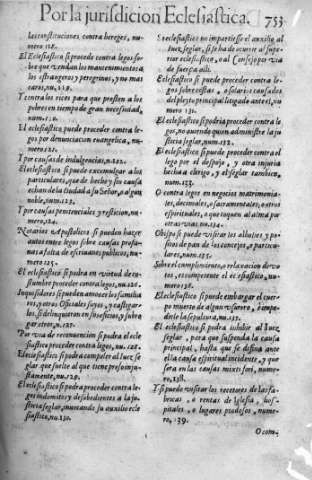 Por la jurisdicion Eclesiastica. 753
las constituciones contra hereges, nu-
mero 118.
El Eclesiastico si procede contra legos so-
bre que vendan los mantenimientos a
los estrangeros y peregrinos, y no mas
caros, nu. 119.
Y contra los ricos para que presten a los
pobres en tiempo de gran necessidad,
num. 120.
El eclesiastico puede proceder contra le-
gos por denunciacion euangelica, nu-
mero 121.
Y por causas de indulgencias, n. 122.
El Eclesiastico si puede excomulgar a los
particulares, que de hecho y sin causa
echan de la ciudad a su Señor, o algun
noble, num. 123.
Y por causas penitenciales y resticion, nu-
mero 124.
Notarios Apostolicos si pueden hazer
autos entre legos sobre causas profa-
nas a falta de escriuanos publicos, nu-
mero 125.
El eclesiastico si podra en virtud de co-
stumbre proceder contra legos, nu. 126.
Inquisidores si pueden a los familia
res, y otros Oficiales suyos, y castigar-
los, si delinquieren en sus oficios, y sobre
que otros, n. 127.
Por via de reconuencion si podra el ecle
siastico proceder contra legos, nu. 128.
El eclesiastico si podra compeler al juez se
glar que suelte al que tiene preso inju-
stamente, nu. 129.
El eclesiastico si podra proceder contra le-
gos indomitos y desobedientes a la ju-
sticia seglar, inuocando su auxilio ecle
siastico, nu. 130.
Y eclesiastico no impartiesse el auxilio al
juez seglar, si se ha de ocurrir al supe-
rior eclesiastico, o al Consejo por via
de fuerça alli.
Eclesiastico si puede proceder contra le-
gos sobre costas, o salarios causados
del pleyto principal litigado ante el, nu
mero 131.
Eclesiastico si podria proceder contra le-
gos, no auiendo quien administre la ju
sticia seglar, num. 132.
El Eclesiastico si puede proceder contra el
lego por el despojo, y otra injuria
hecha a clerigo, y el seglar tambien,
num. 133.
O contra legos en negocios matrimonia-
tes, decimales, o sacramentales, o otros
espirituales, o que toquen al alma por
otras vias, nu. 134.
Obispo si puede visitar los alhulies, y po-
sitos de pan de los concejos, o particu-
lares, num. 135.
Sobre el cumplimiento, o relaxacion de vo
tos, es competente el eclesiastico, nu-
mero 136.
El eclesiastico si puede embargar el cuer-
po muerto de algun vsurero, è impe-
dirle la sepultura, nu. 137.
El eclesiastico si podra inhibir al Iuez
seglar, para que suspenda la causa
principal, hasta que se difina ante
el la causa espiritual incidente, y que
sera en las causas mixti fori, nume-
ro, 138.
Y si puede visitar los recetores de las fa-
bricas, o rentas de Iglesia, hos-
pitales, o lugares piadosos, nume-
ro, 139.
O com-